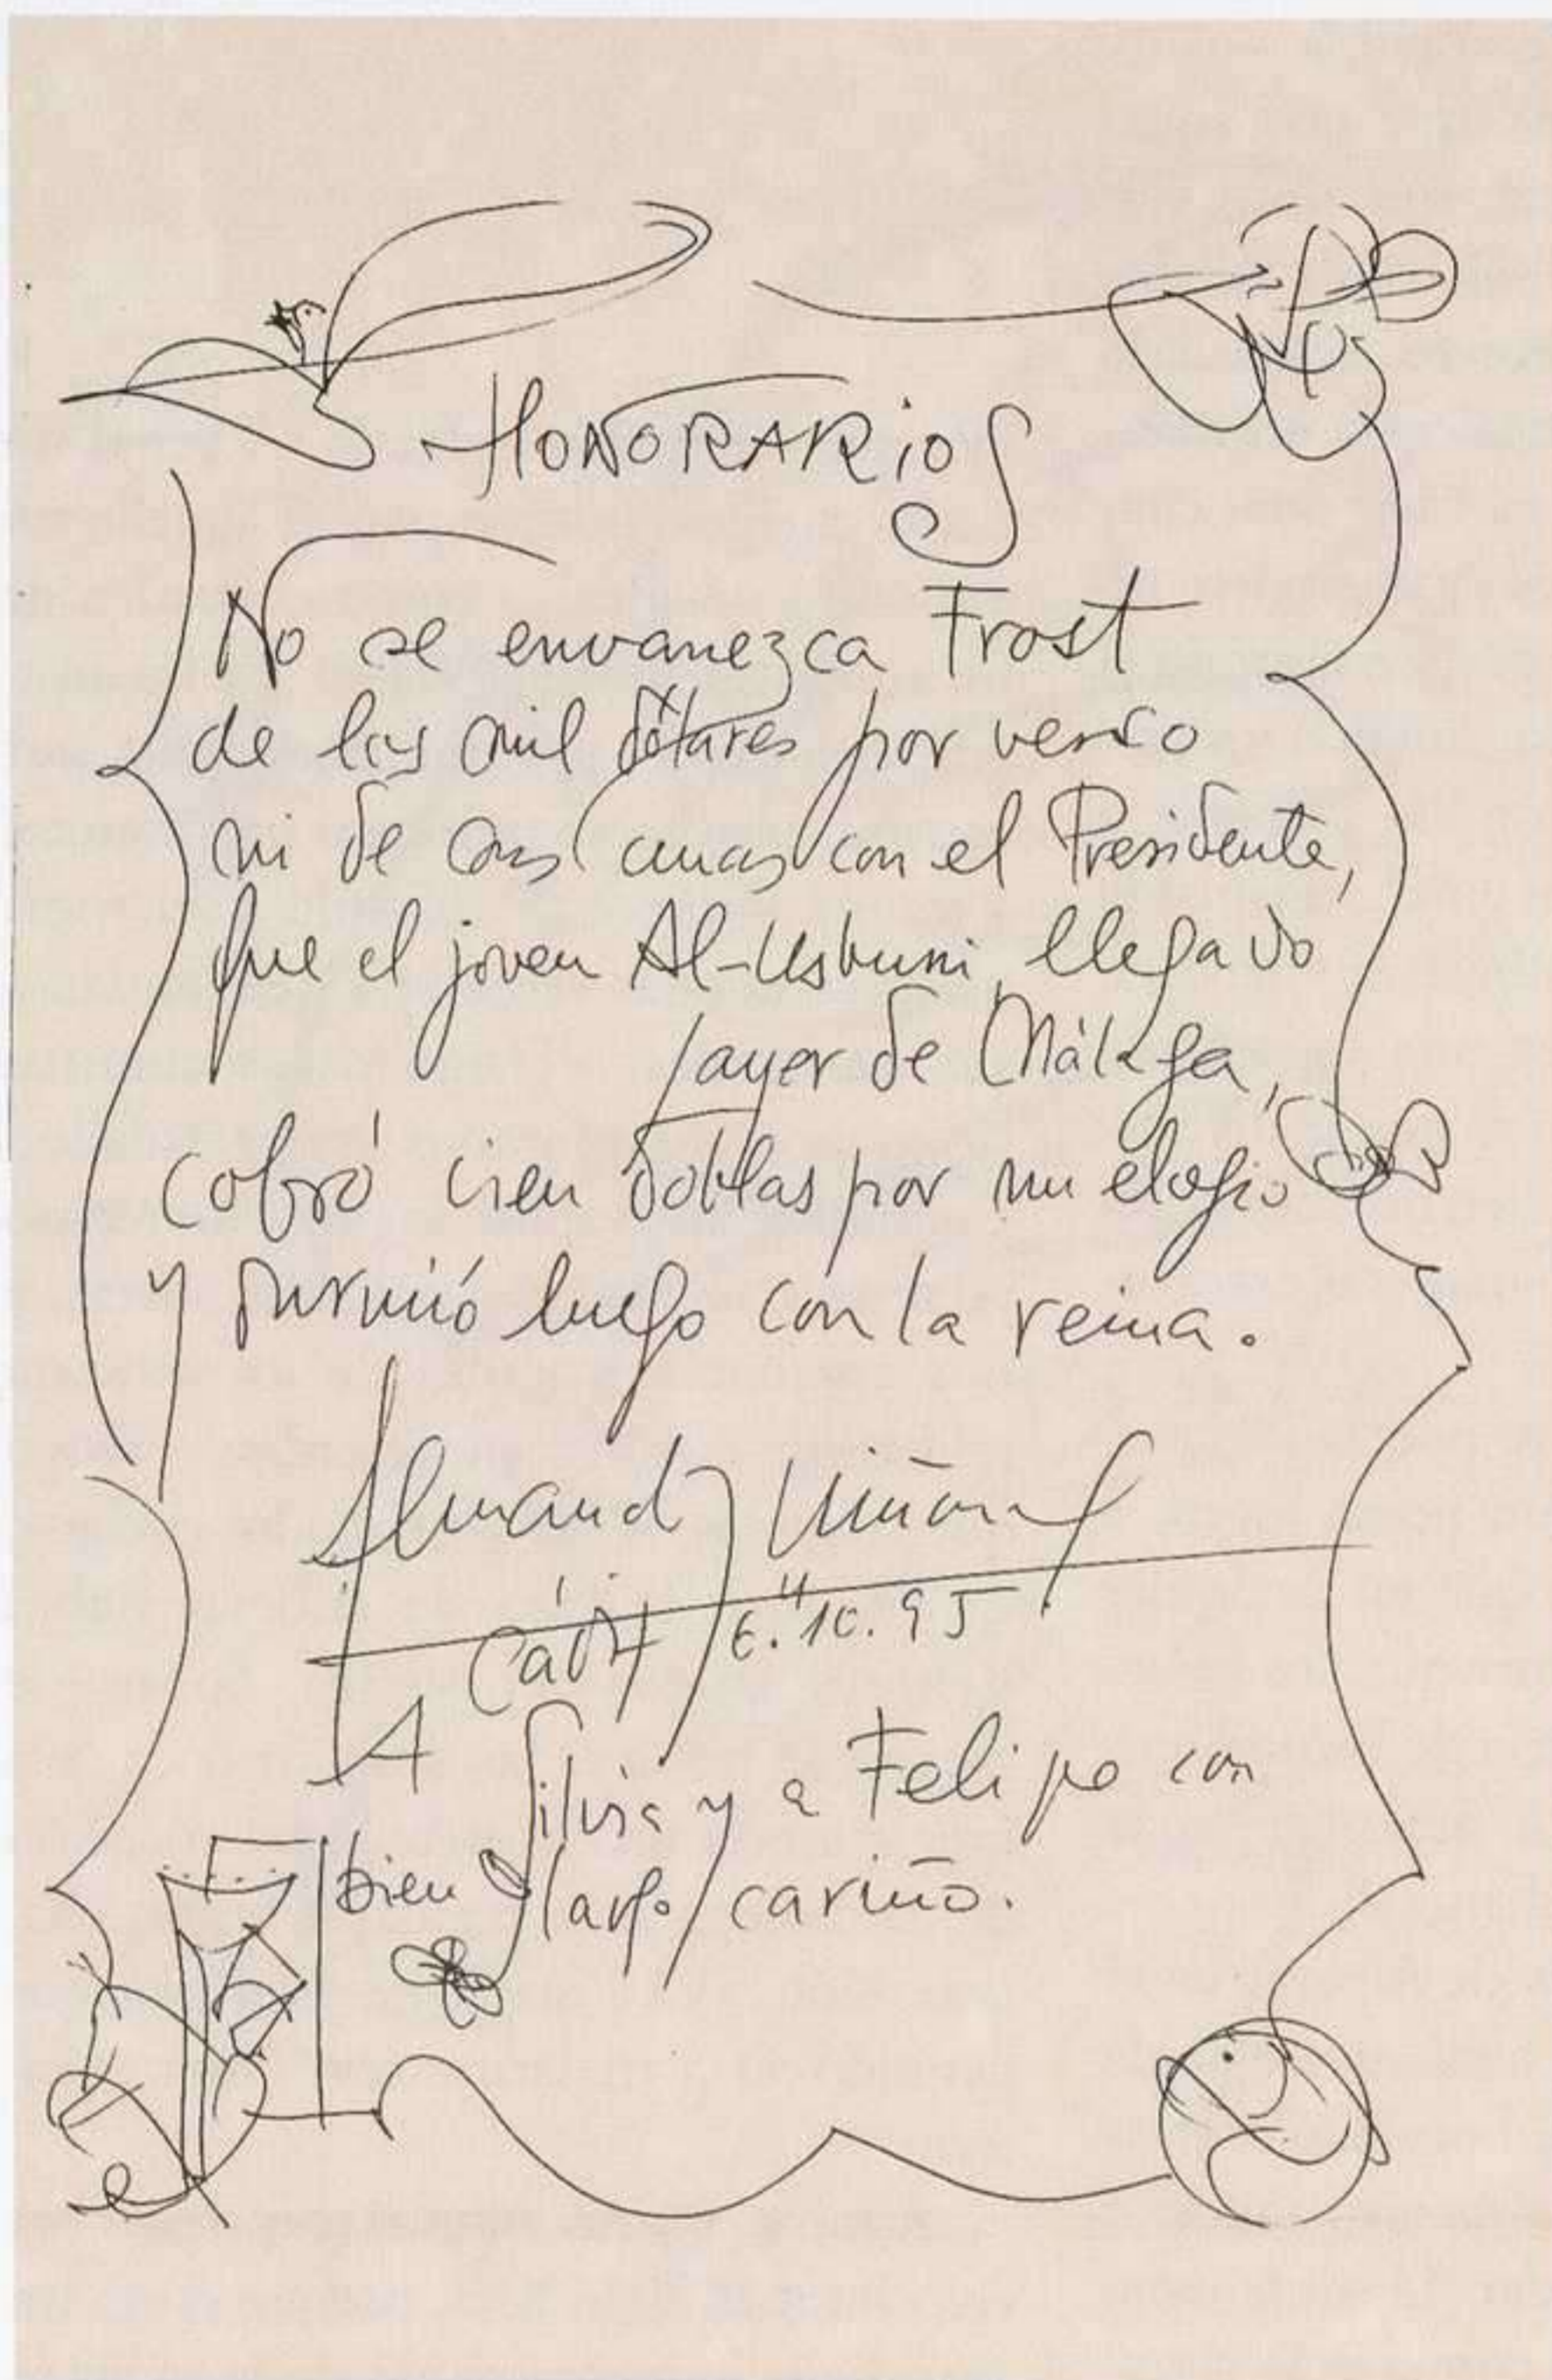 HONORARIOS
No se envanezca Frost
de los mil dólares por verso
ni de sus cenas con el Presidente,
que el joven Al-Usbuni, llegado
ayer de Málaga,
cobró cien doblas por un elogio
y durmió luego con la reina.
Fernando Quiñones
Cádiz 6.10.95
A Silvia y a Felipe con
bien largo cariño.